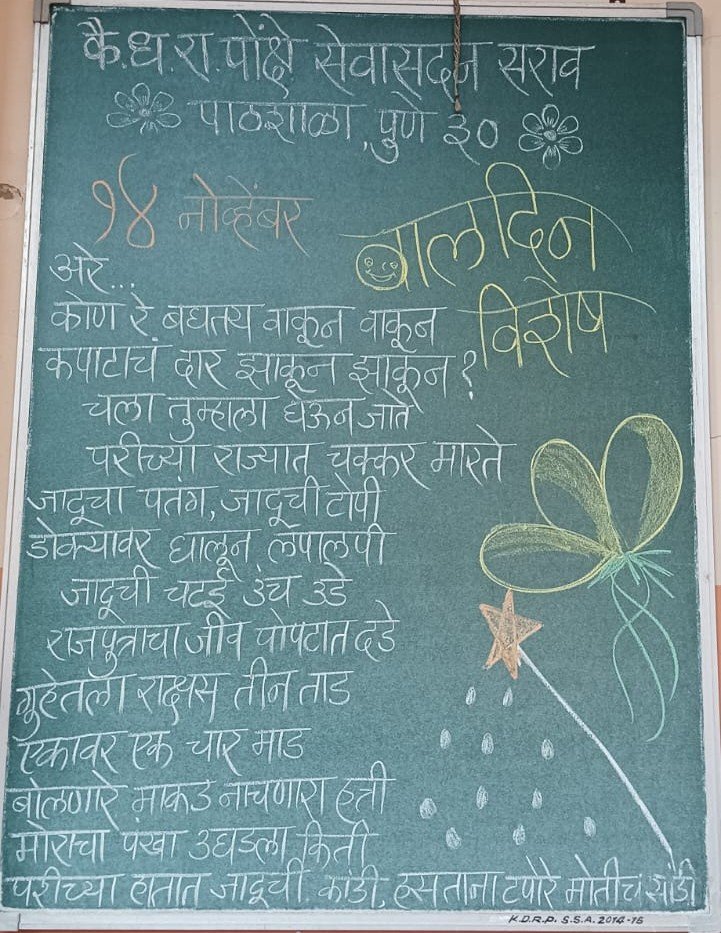 कै.ध.रा.पोंक्षे सेवासदन सराव
पाठशाळा, पुणे ३०
१४ नोव्हेंबर
बालदिन
विशेष
अरे...
कोण रे बघतय वाकून वाकून
कपाटाचं दार झाकून झाकून?
चला तुम्हाला घेऊन जाते
परीच्या राज्यात चक्कर मारते
जादूचा पतंग, जादूची टोपी
डोक्यावर घालून लपालपी
जादूची चटई उंच उडे
राजपुत्राचा जीव पोपटात दडे
गुहेतला राक्षस तीन ताड
एकावर एक चार माड
बोलणारे माकड नाचणारा हत्ती
मोराचा पंखा उघडला किती
परीच्या हातात जादूची कांडी, हसताना टपोरे मोतीच सांडी
K.D.R.P. S.S.A. 2014-15